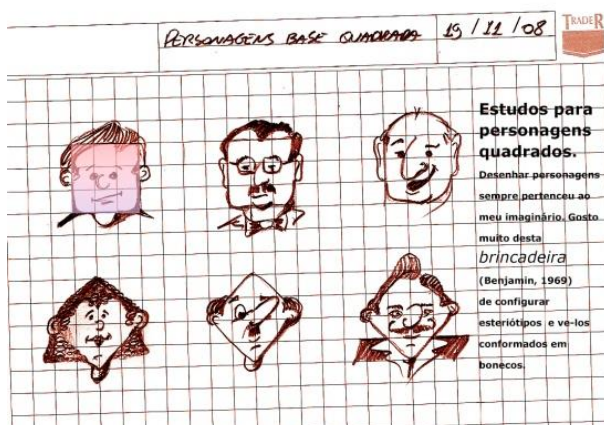 PERSONAGENS BASE QUADRADA
19 / 11 / 08
TRADER
Estudos para
personagens
quadrados.
Desenhar personagens
sempre pertenceu ao
meu imaginário. Gosto
muito desta
brincadeira
(Benjamin, 1969)
de configurar
esteriótipos e ve-los
conformados em
bonecos.